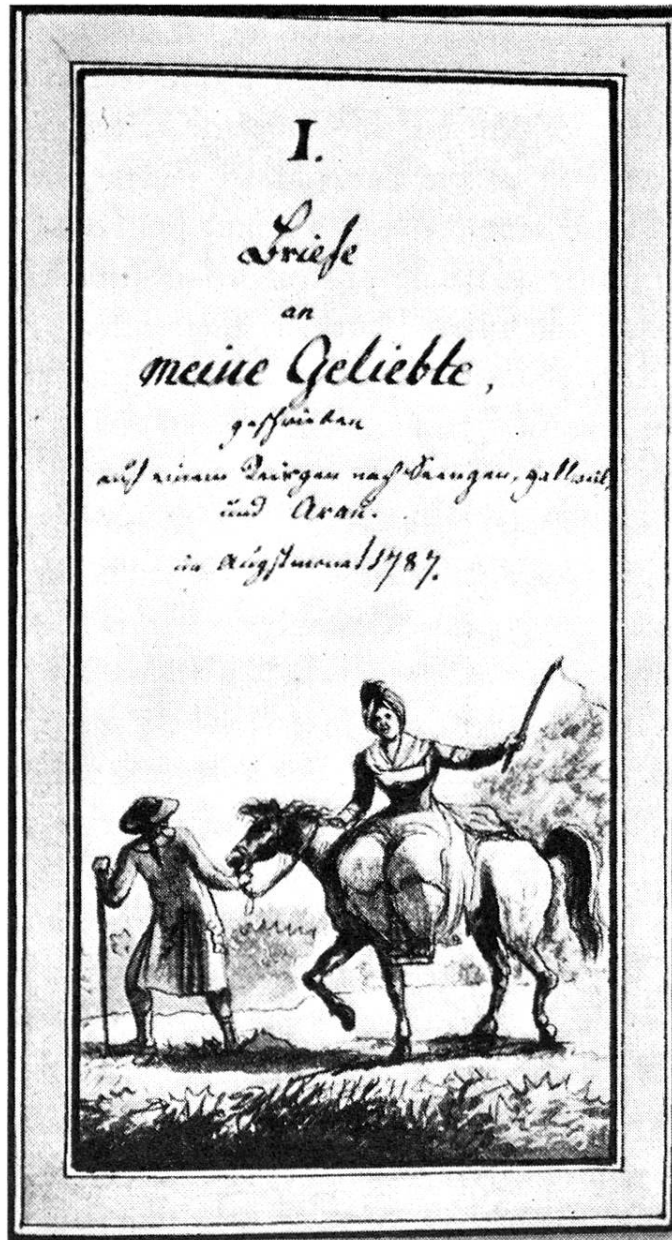 I.
Briefe
an
meine Geliebte,
geschrieben
auf einem Reisgen nach Seengen,
und Arau.
im Augstmonat 1787.